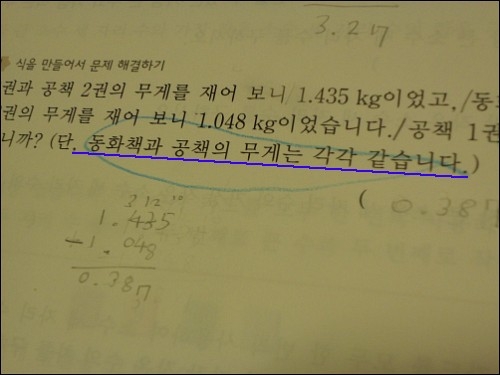 3.27
식을 만들어서 문제 해결하기
권과 공책 2권의 무게를 재어 보니/1.435 kg이었고,/동
권의 무게를 재어 보니 1.048 kg이었습니다./공책 1권
니까? (단, 동화책과 공책의 무게는 각각 같습니다.)
( 0.387
3 12 10
1.435
-1.048
0.387